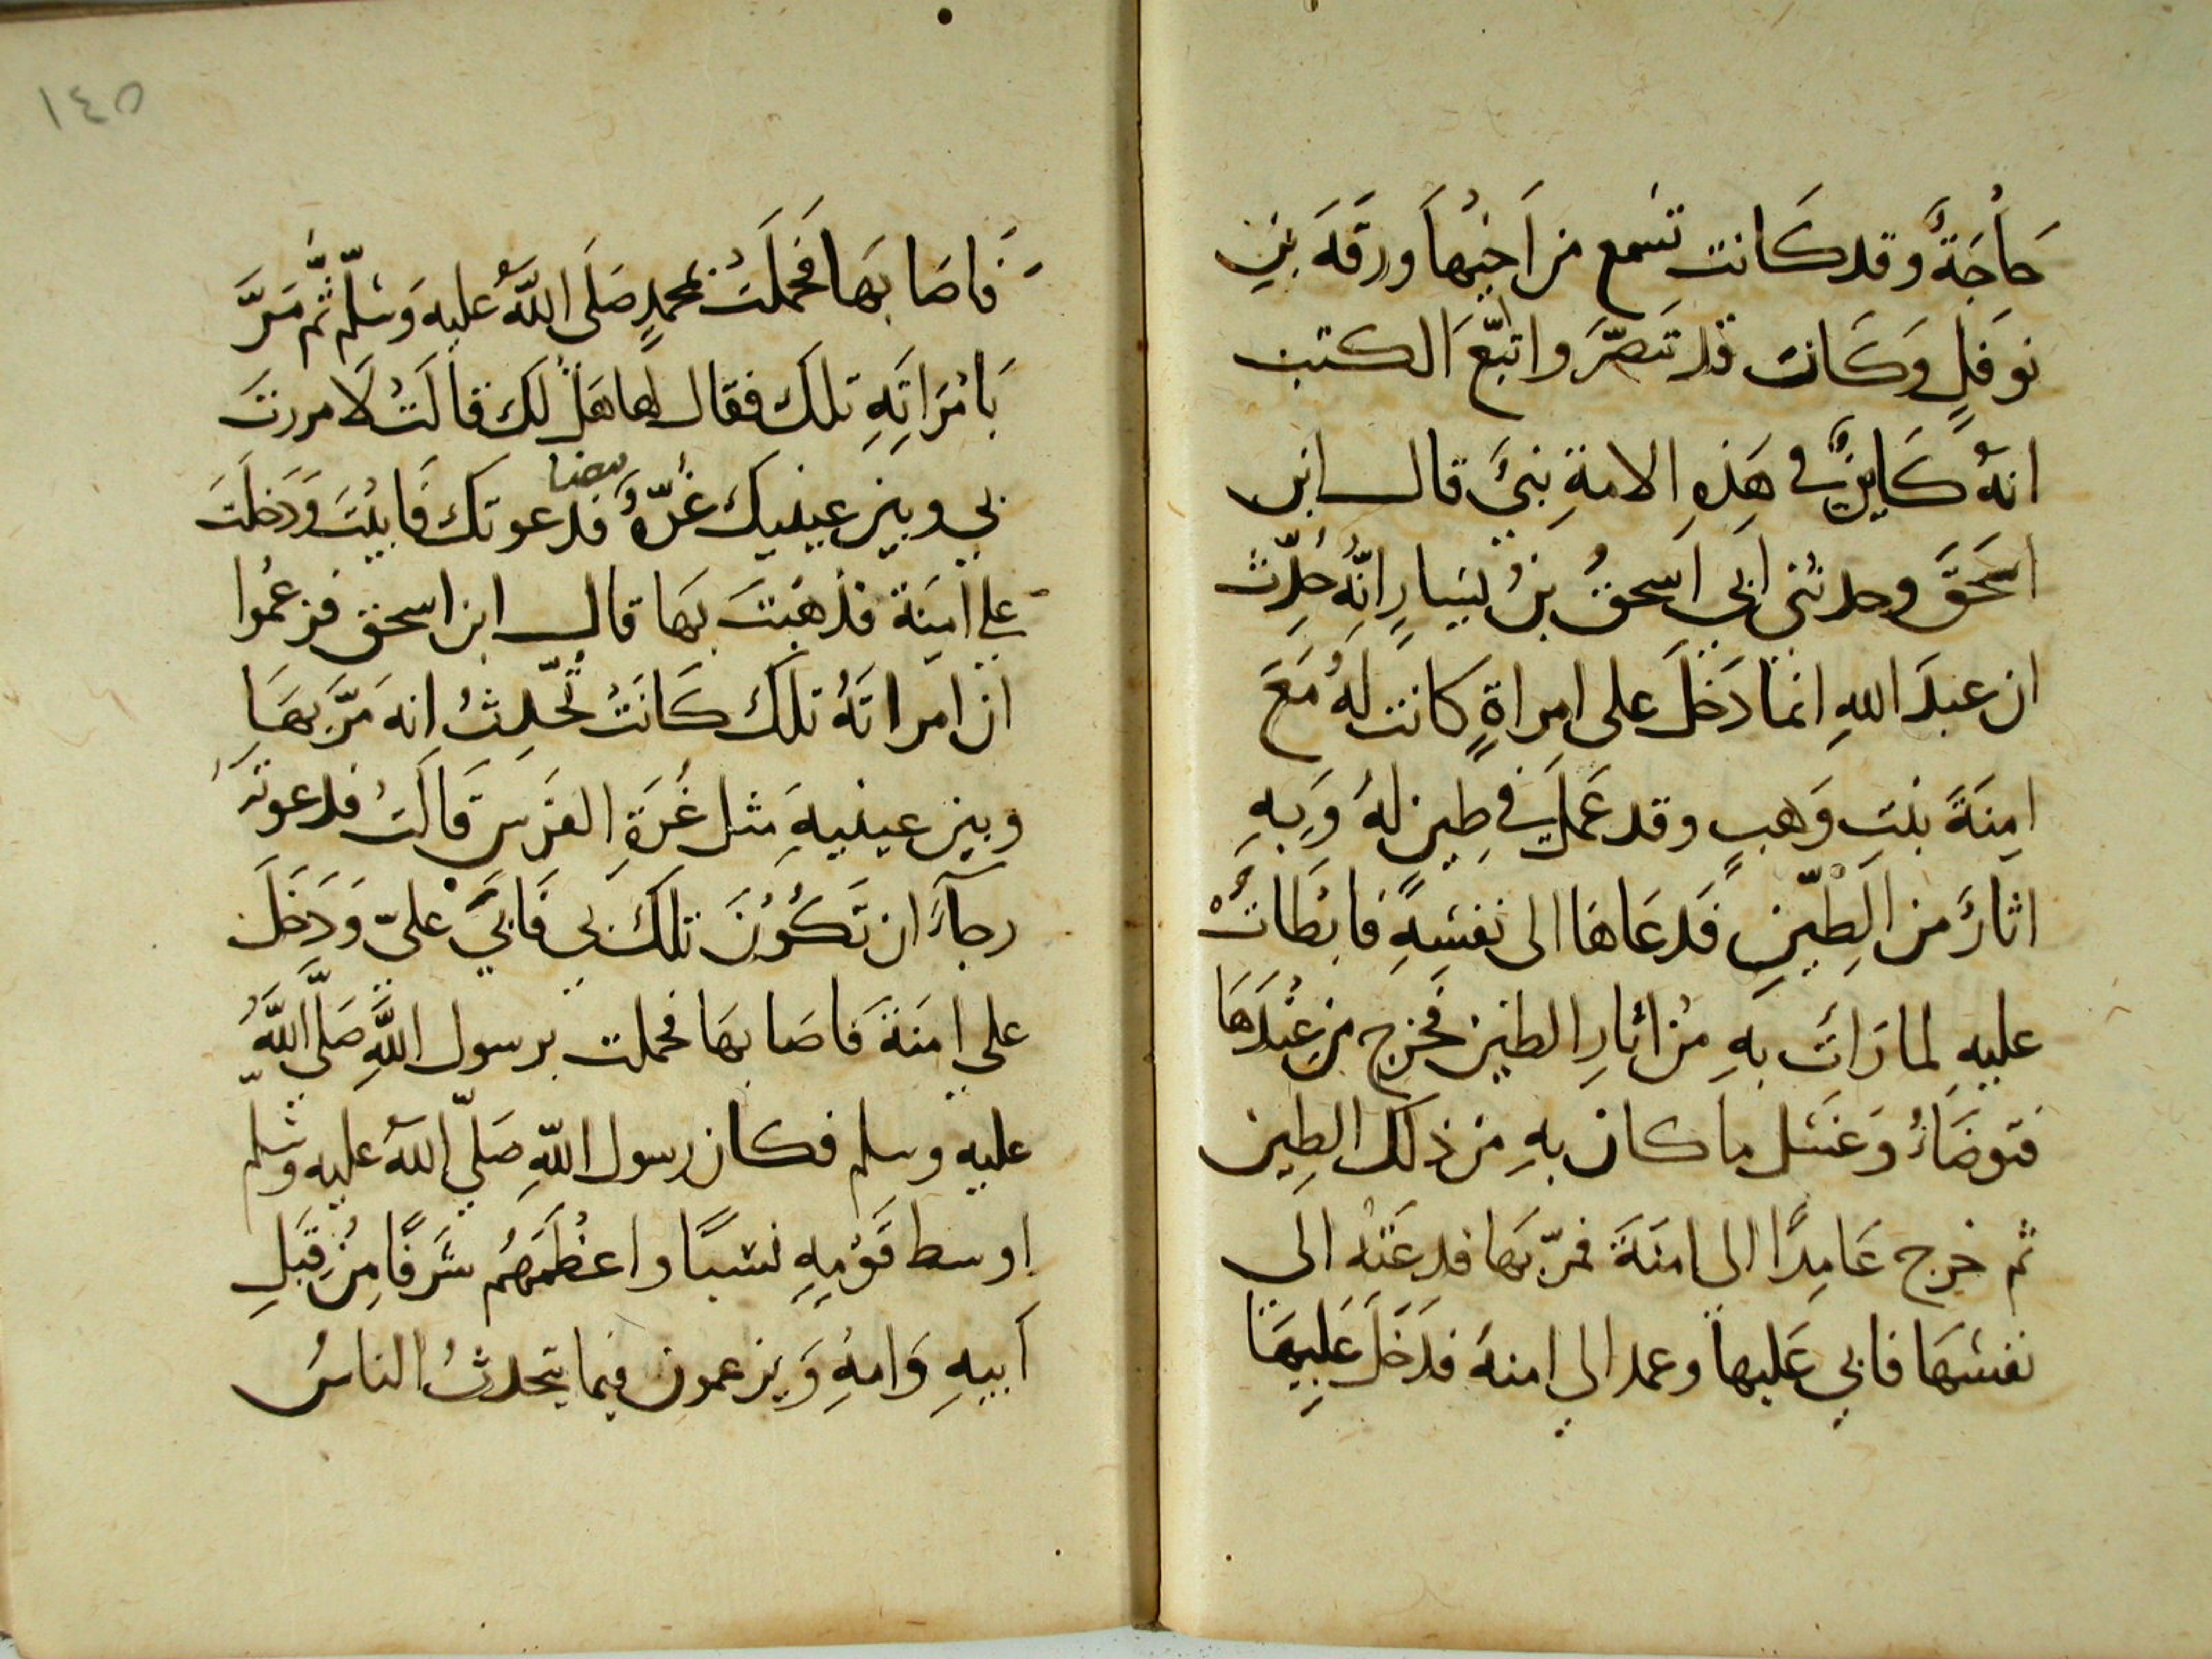 حَاجَةٌ وقد كَانت تسْمع من اَخِيْهَا وَرَقَةَ بْنِ
نوفَلٍ وَكَانَ قد تَنَصَّرَ واتبَّعَ الكتب
انهُ كَاينٌ في هَذِهِ الامةِ نبيٌ قال ابن
اسحَقَ وحدثني ابي اسحقُ بنُ يَسَارٍ انَّهُ حُدِّثَ
ان عبدَ اللهِ انمَا دَخَلَ على امراةٍ كانت لهُ مَعَ
امِنَةَ بنتِ وَهبٍ وقد عَمِلَ في طِينٍ لهُ وَبِهِ
اثارٌ من الطِّينِ فَدعَاهَا الى نفسِهِ فابْطَاتْ
عليهِ لما رَاَتْ بهِ مِنْ اثارِ الطينِ فخرج من عِنْدَهَا
فتوضَاءُ وَغسَل ما كان بهِ من ذلك الطين
ثم خرج عَامِدًا الى امنَةَ فمرّ بهَا فدعَتْه الى
نفسهَا فابي عَليها وعمد الي امنةَ فدَخَلَ عَليهَا
١٤٥
فَاصَابهَا فَحَملَتْ بمحمدٍ صَلَى اللهُ عليهِ وَسلّم ثُم مَرَّ
بَامْرَاتِهِ تلك فقال لها هَلْ لَكِ قالَتْ لَا مررتَ
بي وبين عينيكَ غُرّةٌ بيضا فدعوتك فَابيْتَ وَدَخَلتَ
علي امِنَة فذهَبَتَ بهَا قال ابن اسحق فزعمُوا
ان امراتَهُ تلكَ كَانَتْ تُحَدِّثُ انه مَرَّ بهَا
وبين عينيهِ مثل غُرَةِ الفَرَسِ قَالَتْ فدعوتهُ
رجَآءَ ان تَكُوْنَ تلكَ بي فَابَي عَليّ وَدَخَلَ
على امنَةَ فَاصَابهَا فحملت برسول اللهِ صَلَّى اللهُ
عليه وسلم فكان رسول اللهِ صَلّي اللهُ عليه وسلم
اوسط قَوْمِهِ نسبًا واعْظَمَهُم شَرَفًا مِنْ قِبَلِ
اَبيهِ وَامهِ وَيزعمون فيما يتحدثُ الناسُ